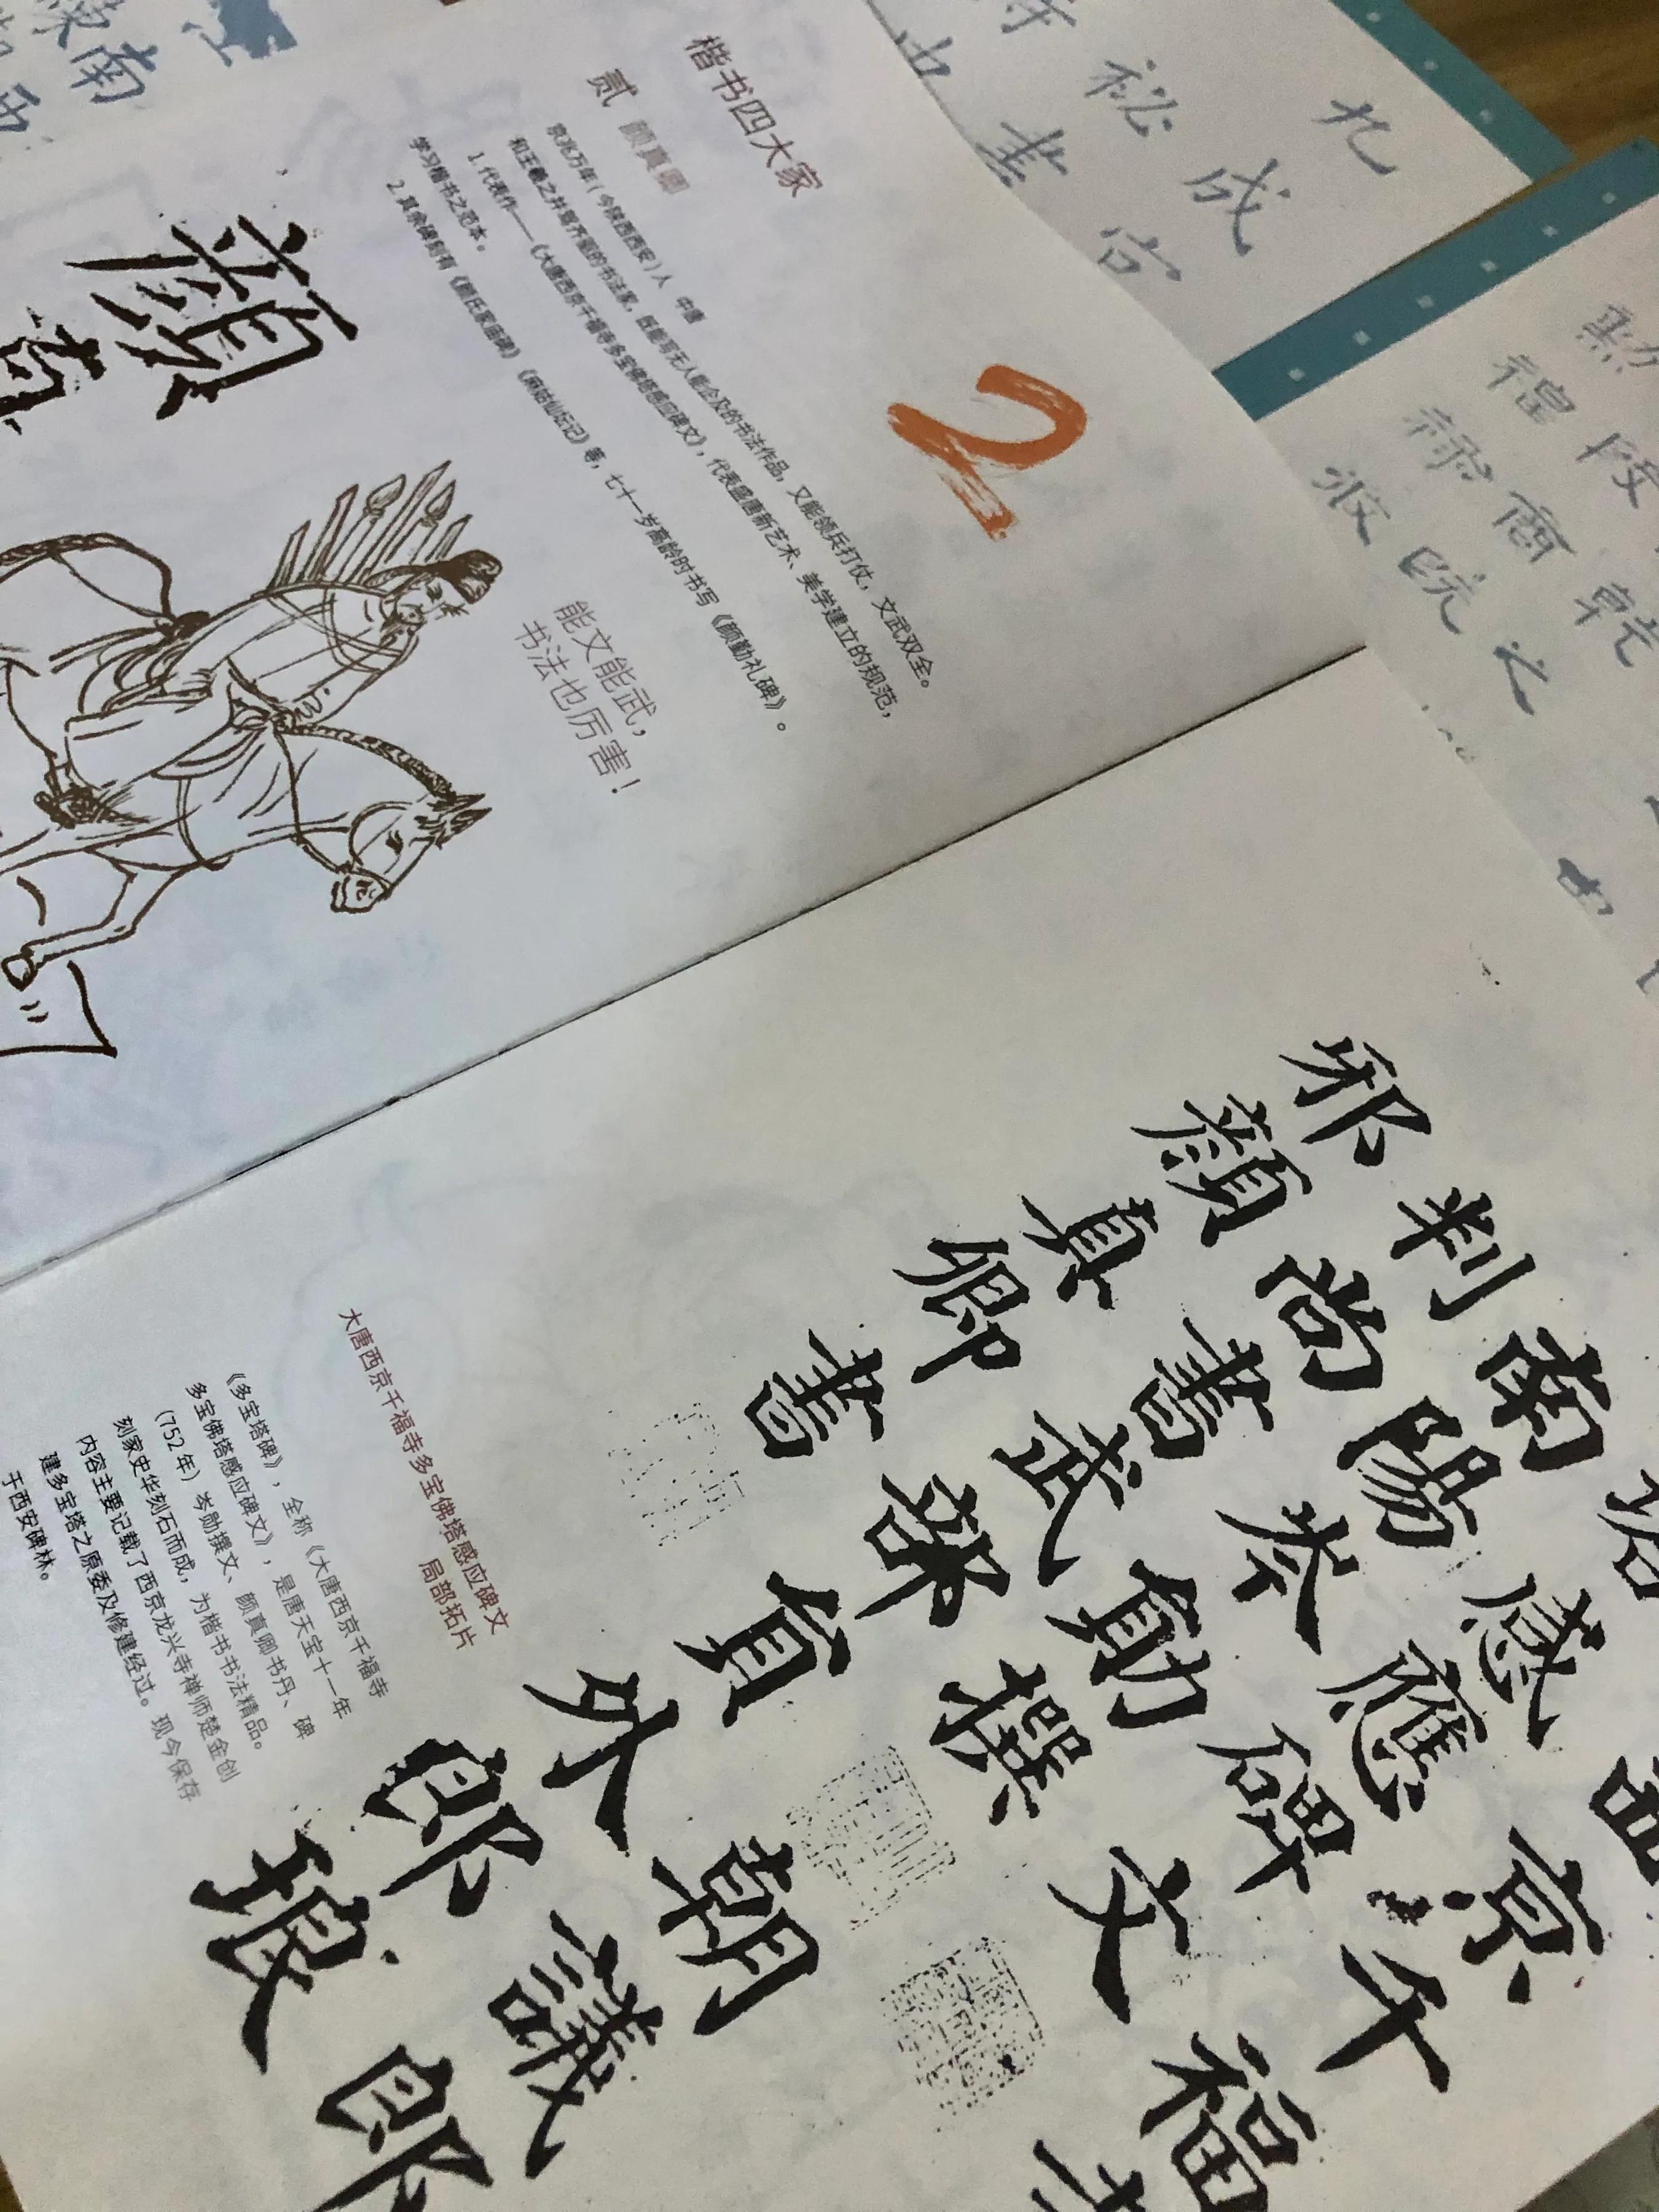 楷书四大家
贰 颜真卿
京兆万年（今陕西西安）人 中唐
和王羲之并驾齐驱的书法家，既能写无人能企及的书法作品，又能领兵打仗，文武双全。
1.代表作——《大唐西京千福寺多宝佛塔感应碑文》，代表盛唐新艺术、美学建立的规范，
学习楷书之范本。
2.其余碑刻有《颜氏家庙碑》《麻姑仙坛记》等，七十一岁高龄时书写《颜勤礼碑》。
2
能文能武，
书法也厉害！
顏
真
南
西
秘
成
宫
商
之
京千福
感應碑文
南陽岑勛撰
判尚書武部員外郎琅
朝議郎
邪顏真卿書
大唐西京千福寺多宝佛塔感应碑文
局部拓片
《多宝塔碑》，全称《大唐西京千福寺
多宝佛塔感应碑文》，是唐天宝十一年
（752年）岑勋撰文、颜真卿书丹、碑
刻家史华刻石而成，为楷书书法精品。
内容主要记载了西京龙兴寺禅师楚金创
建多宝塔之原委及修建经过。现今保存
于西安碑林。